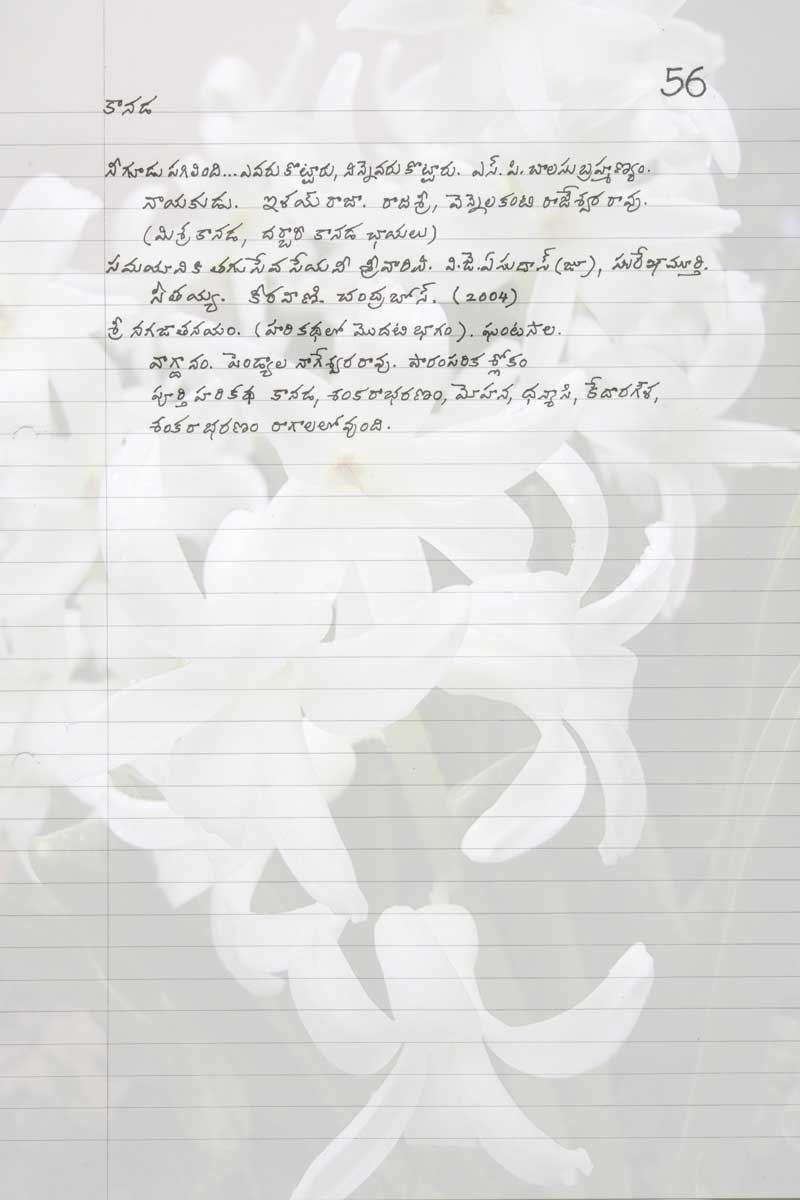 56
కానడ
నీగూడు పగిలింది...ఎవరు కొట్టారు, నిన్నెవరు కొట్టారు. ఎస్. పి. బాలసుబ్రహ్మణ్యం.
నాయకుడు. ఇళయ్ రాజా. రాజశ్రీ, వెన్నెలకంటి రాజేశ్వర రావు.
(మిశ్ర కానడ, దర్బారీ కానడ ఛాయలు)
సమయానికి తగు సేవ సేయనీ శ్రీవారిని. వి.జె.ఏసుదాస్ (జూ), సురేఖామూర్తి.
సీతయ్య. కీరవాణి. చంద్రబోస్. (2004)
శ్రీ నగజాతనయం. (హరికథలో మొదటి భాగం). ఘంటసాల.
వాగ్దానం. పెండ్యాల నాగేశ్వర రావు. పారంపరిక శ్లోకం
పూర్తి హరికథ కానడ, శంకరాభరణం, మోహన, ధన్యాసి, కేదారగౌళ,
శంకరాభరణం రాగాలలో వుంది.